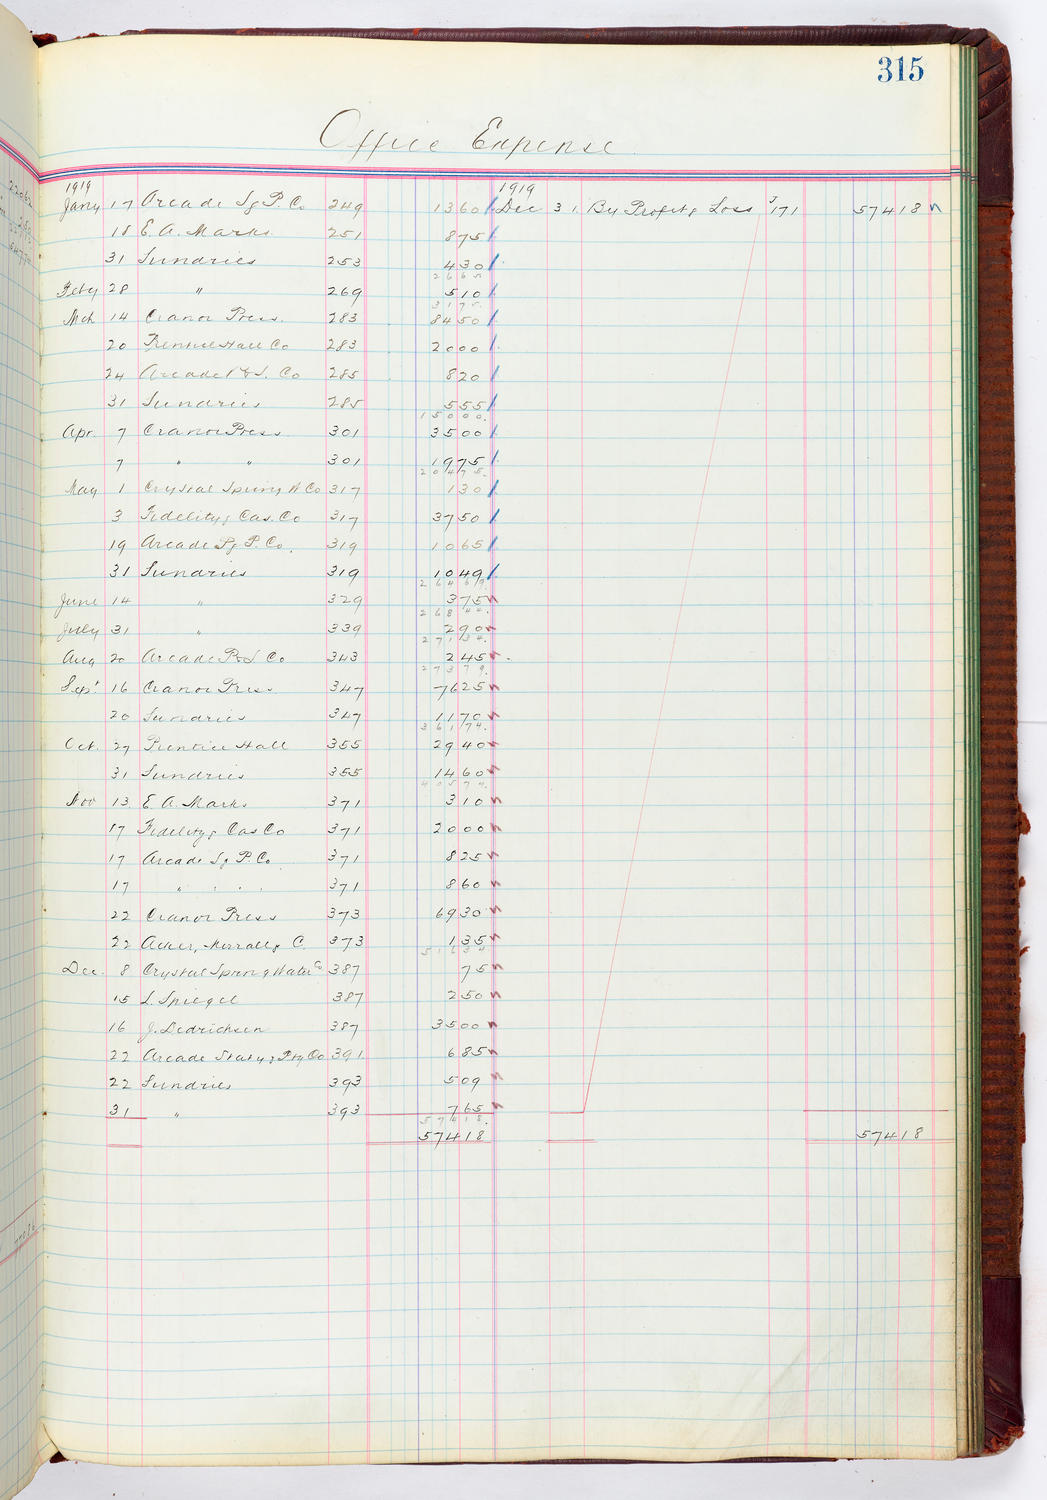 315
Office Expense
1919 1919
Jany 17 Arcade Sg P. Co 249 1360 Dec 31 By Profit & Loss J 171 57418
18 E. A. Marks 251 875
31 Sundries 253 430
2665
Feby 28 " 269 510
3175
Mch 14 Cranor Press. 283 8450
20 Prentice Hall Co 283 2000
24 Arcade P & S. Co 285 820
31 Sundries 285 555
15000.
Apr. 7 Cranor Press 301 3500
7 " " 301 1975
20475.
May 1 Crystal Spring W Co 317 130
3 Fidelity & Cas. Co 317 3750
19 Arcade Sg P. Co. 319 1065
31 Sundries 319 1049
26469.
June 14 " 329 375
26844.
July 31 " 339 290
27134.
Aug 20 Arcade P & S Co 343 245
27379.
Sept 16 Cranor Press 347 7625
20 Sundries 347 1170
36174.
Oct. 27 Prentice Hall 355 2940
31 Sundries 355 1460
40574.
Nov 13 E. A. Marks 371 310
17 Fidelity & Cas Co 371 2000
17 Arcade Sg P. Co 371 825
17 " " " " 371 860
22 Cranor Press 373 6930
22 Acker, Merrall & C. 373 135
51634
Dec. 8 Crystal Spring Water Co 387 75
15 L. Spiegel 387 250
16 J. Dedrichsen 387 3500
22 Arcade Staty & Ptg Co 391 685
22 Sundries 393 509
31 " 393 765
57418.
57418 57418